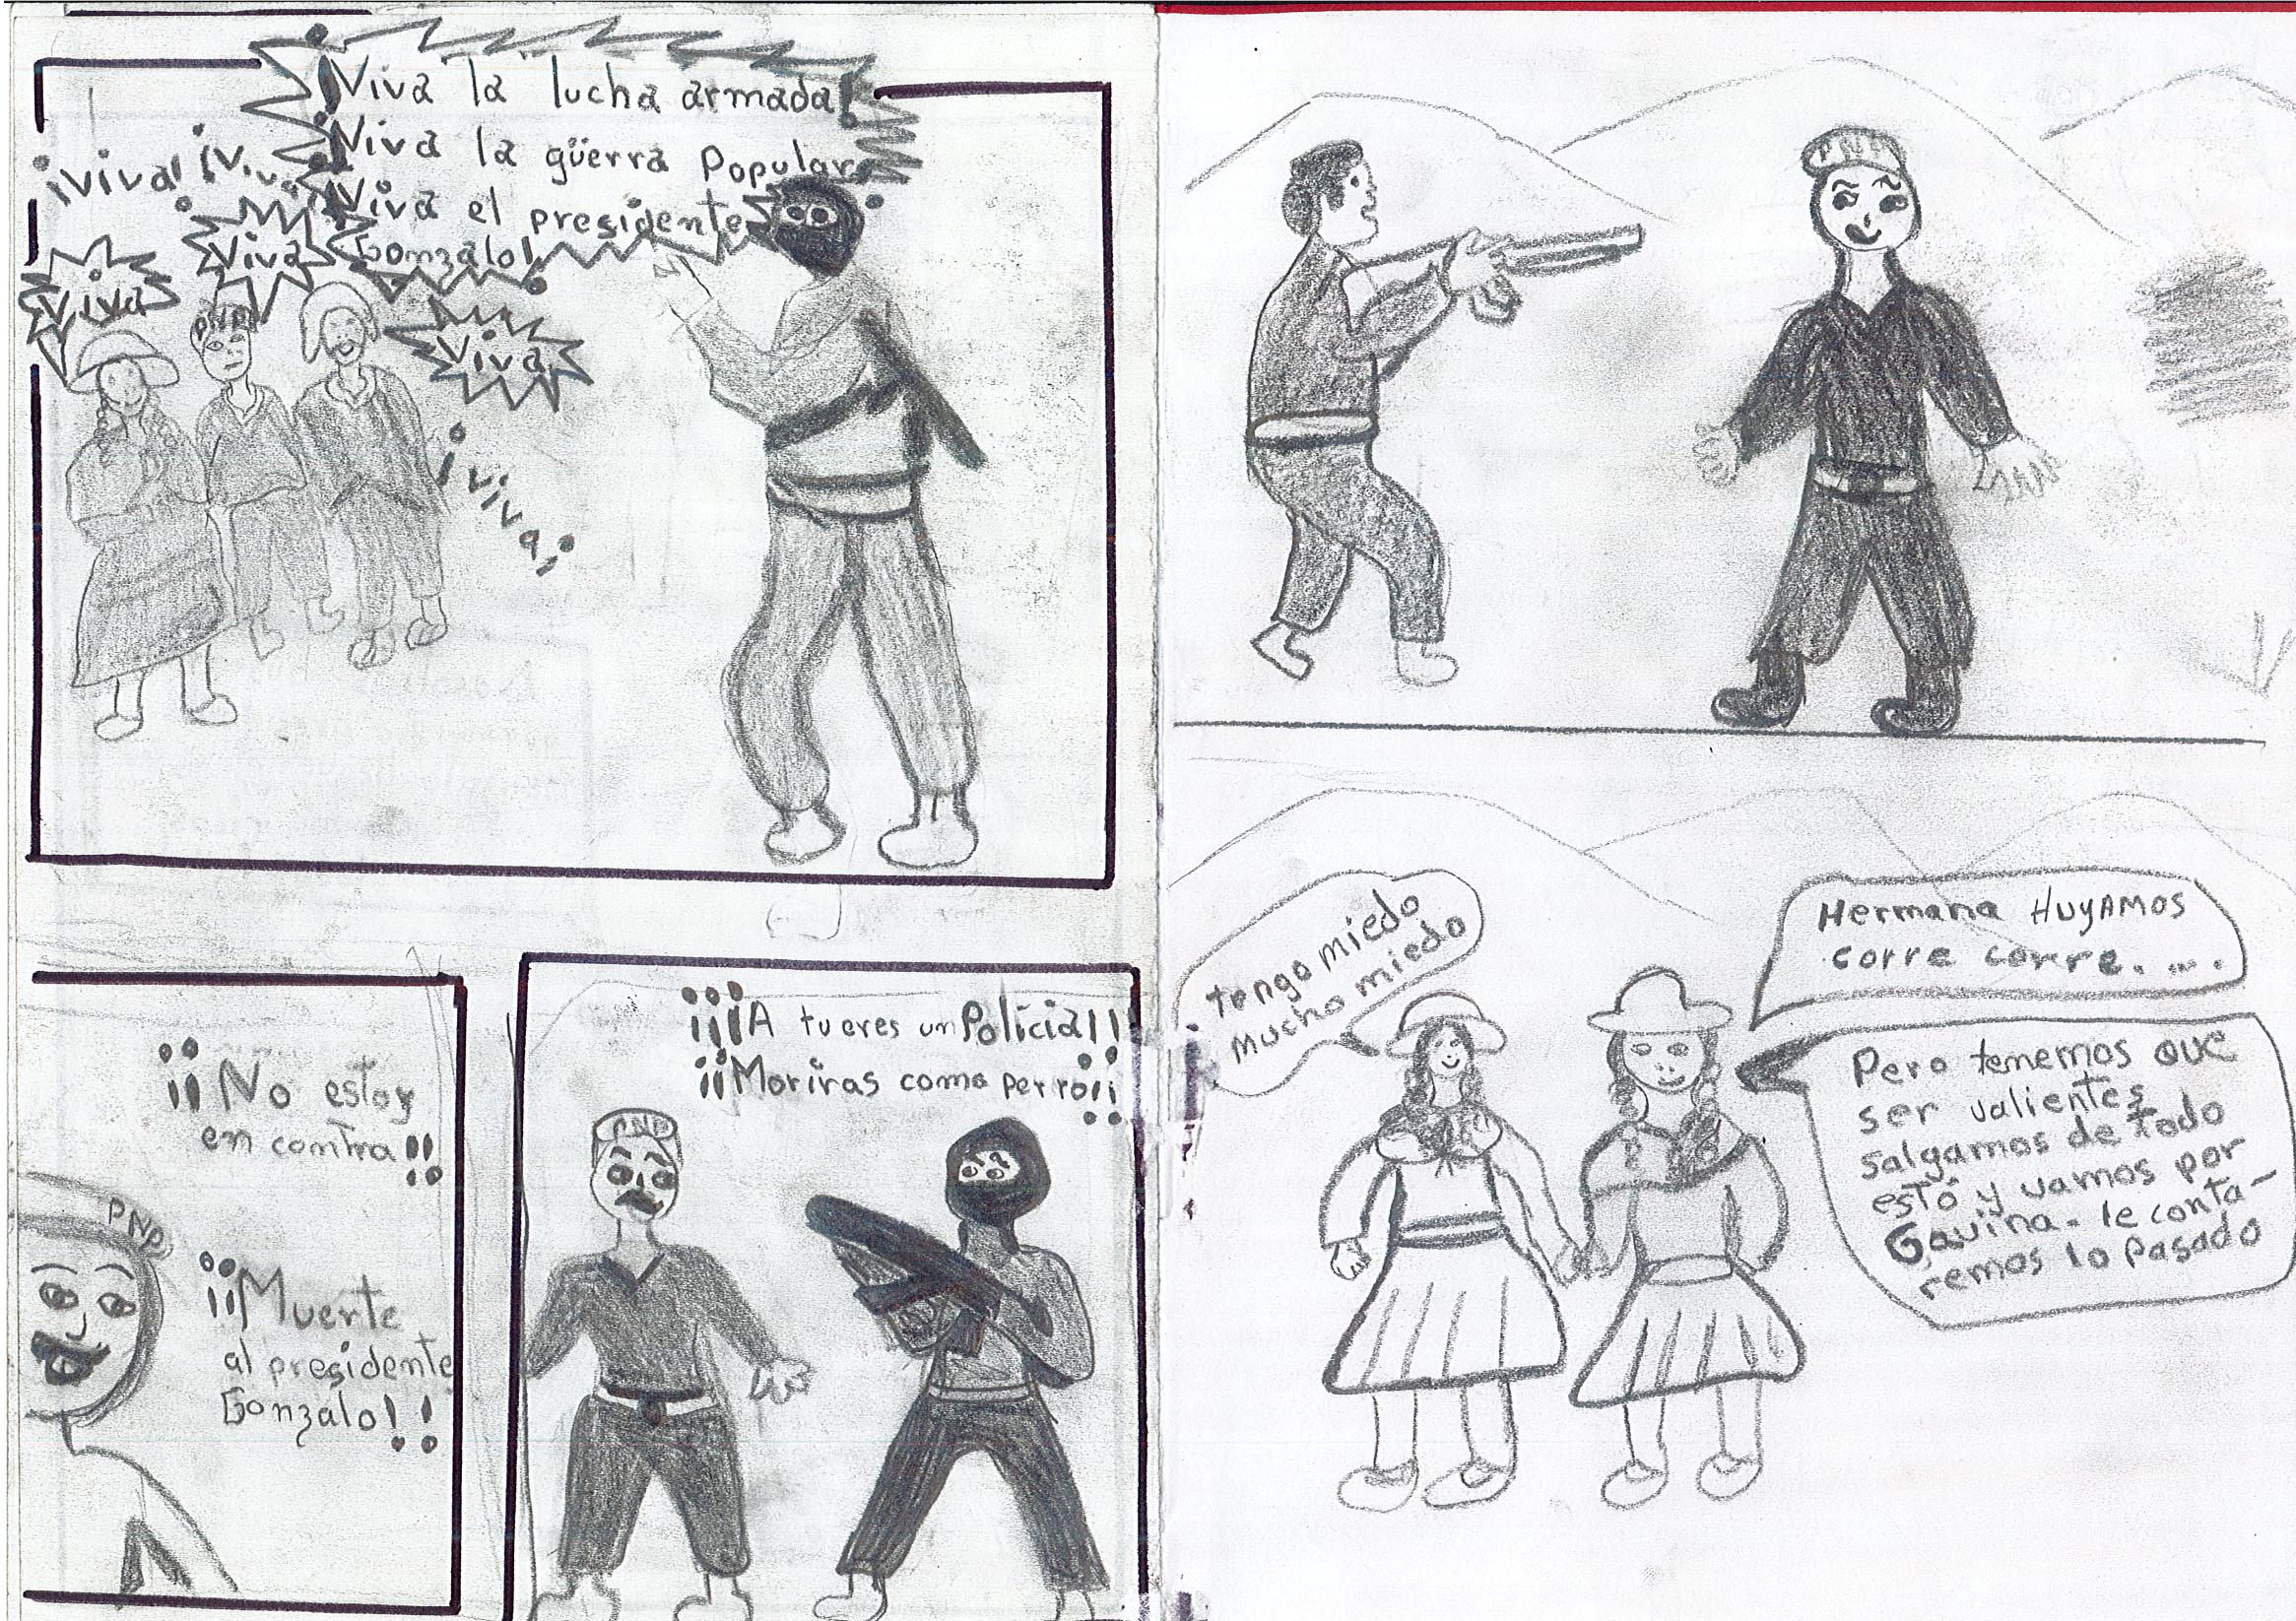 ¡Viva la lucha armada!
¡Viva la güerra Popular
¡Viva el presidente
Gonzalo!
¡Viva!
Viva
Viva
PNP
Viva
¡Viva!
¡¡No estoy
en contra!!
PNP
¡¡Muerte
al presidente
Gonzalo!!
¡¡¡A tu eres un Policia!!
¡¡Moriras como perro!!
PNP
PNP
tengo miedo
mucho miedo
Hermana HUYAMOS
corre corre. ...
Pero tenemos que
ser valientes
salgamos de todo
estó y vamos por
Gavina - le conta-
remos lo Pasado